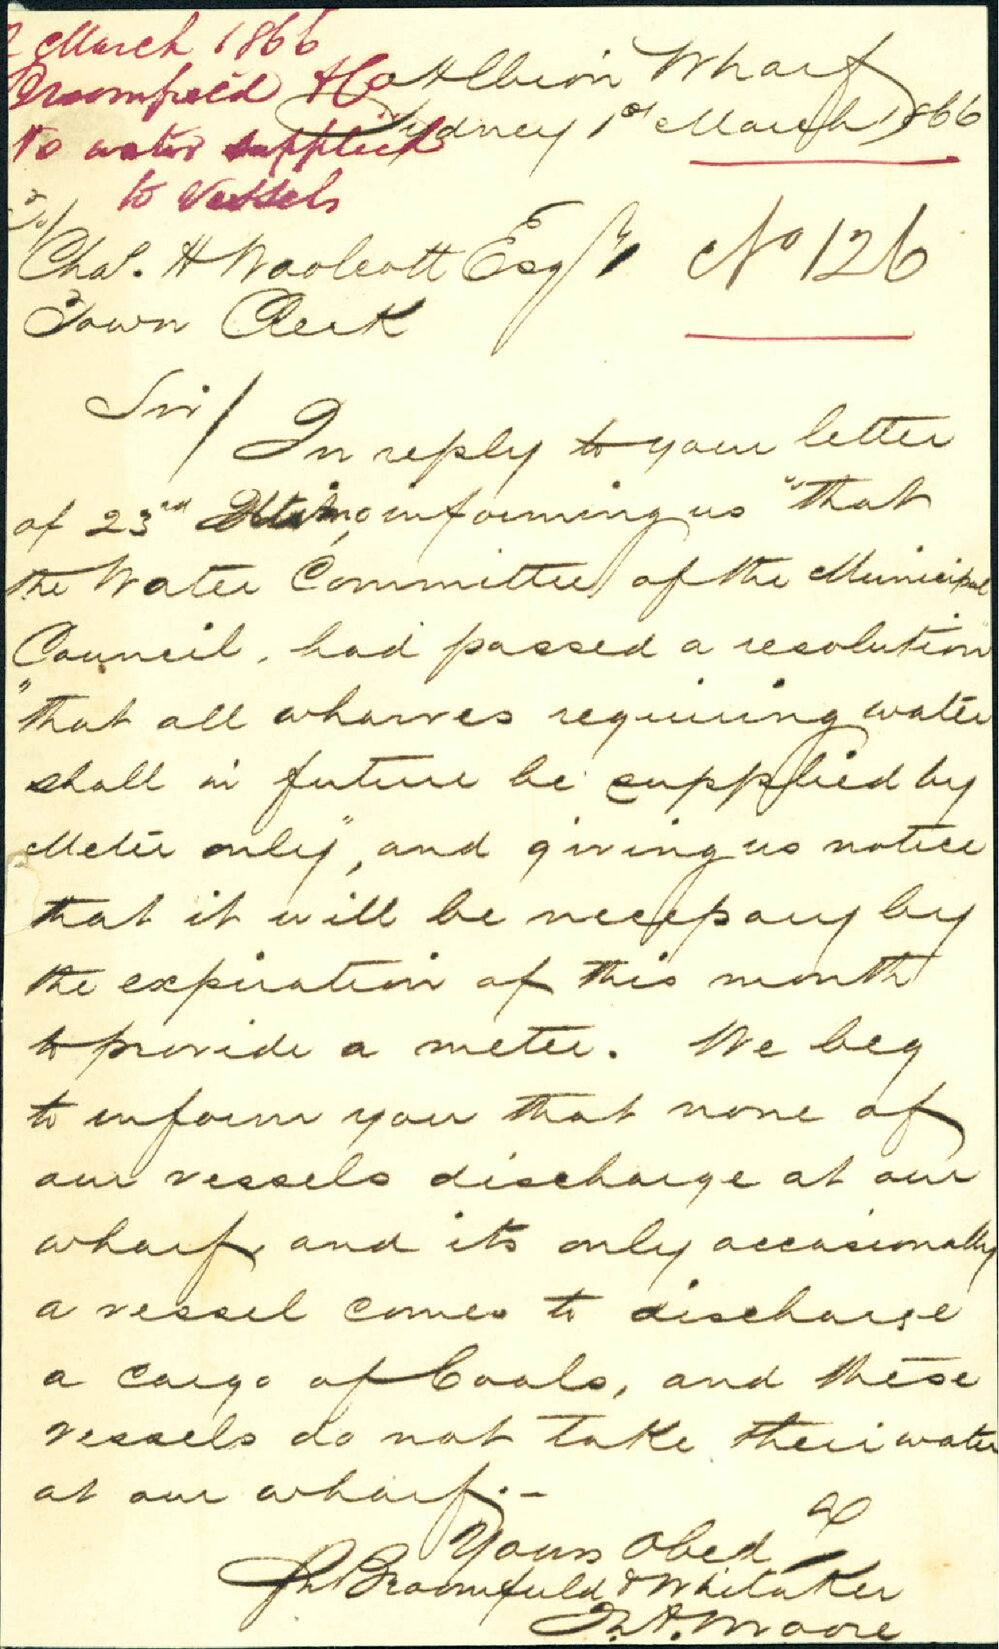 2 March 1866
Broomfield & Co
to water supplied
to Vessels
Albion Wharf
Sydney 1st March 1866
To/
Chas. H Woolcott Esqr
No 126
Town Clerk
Sir/ In reply to your letter
of 23rd Ultimo, informing us "that
the Water Committee of the Municipal
Council, had passed a resolution
"that all wharves requiring water
shall in future be supplied by
Meter only", and giving us notice
that it will be necessary by
the expiration of this month
to provide a meter. We beg
to inform you that none of
our vessels discharge at our
wharf, and its only occasionally
a vessel comes to discharge
a cargo of Coals, and these
vessels do not take their water
at our wharf. -
Yours Obed
Broomfield & Whitaker
A. Moore